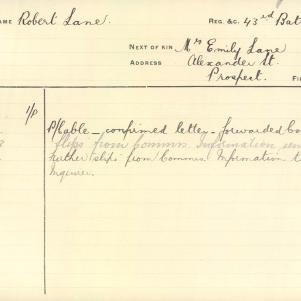 NAME Robert Lane. REG. &C. 43rd Bat
NEXT OF KIN Mrs Emily Lane
ADDRESS Alexander St.
Prospect. FI
1/P
P/Cable _ confirmed letter - forwarded
slips from Commrs. Information
3
further slips from Commrs. Information t
Inquirer.